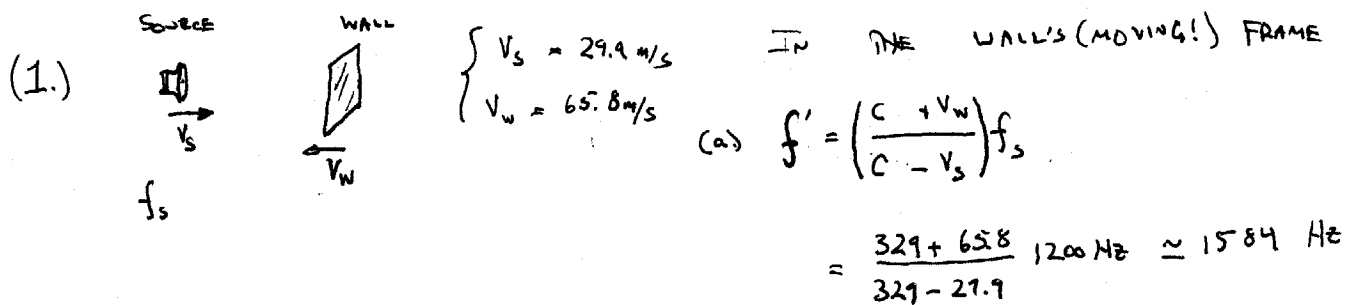 SOURCE WALL
(1.)
V_s
V_w
f_s
{ V_s = 29.9 m/s
V_w = 65.8 m/s
IN THE WALL'S (MOVING!) FRAME
(a) f' = ( (C + V_w) / (C - V_s) ) f_s
= (329 + 65.8) / (329 - 29.9) 1200 Hz ≃ 1584 Hz